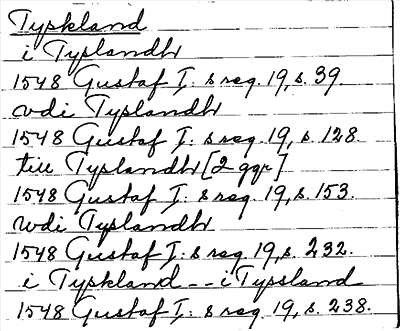 Tyskland
i Tyslandh
1548 Gustaf I: s reg. 19, s. 39.
vdi Tyslandh
1548 Gustaf I: s reg. 19, s. 128.
till Tyslandh [2 ggr]
1548 Gustaf I: s reg. 19, s. 153.
wdi Tyslandh
1548 Gustaf I: s reg. 19, s. 232.
i Tyskland -- i Tyssland
1548 Gustaf I: s reg. 19, s. 238.